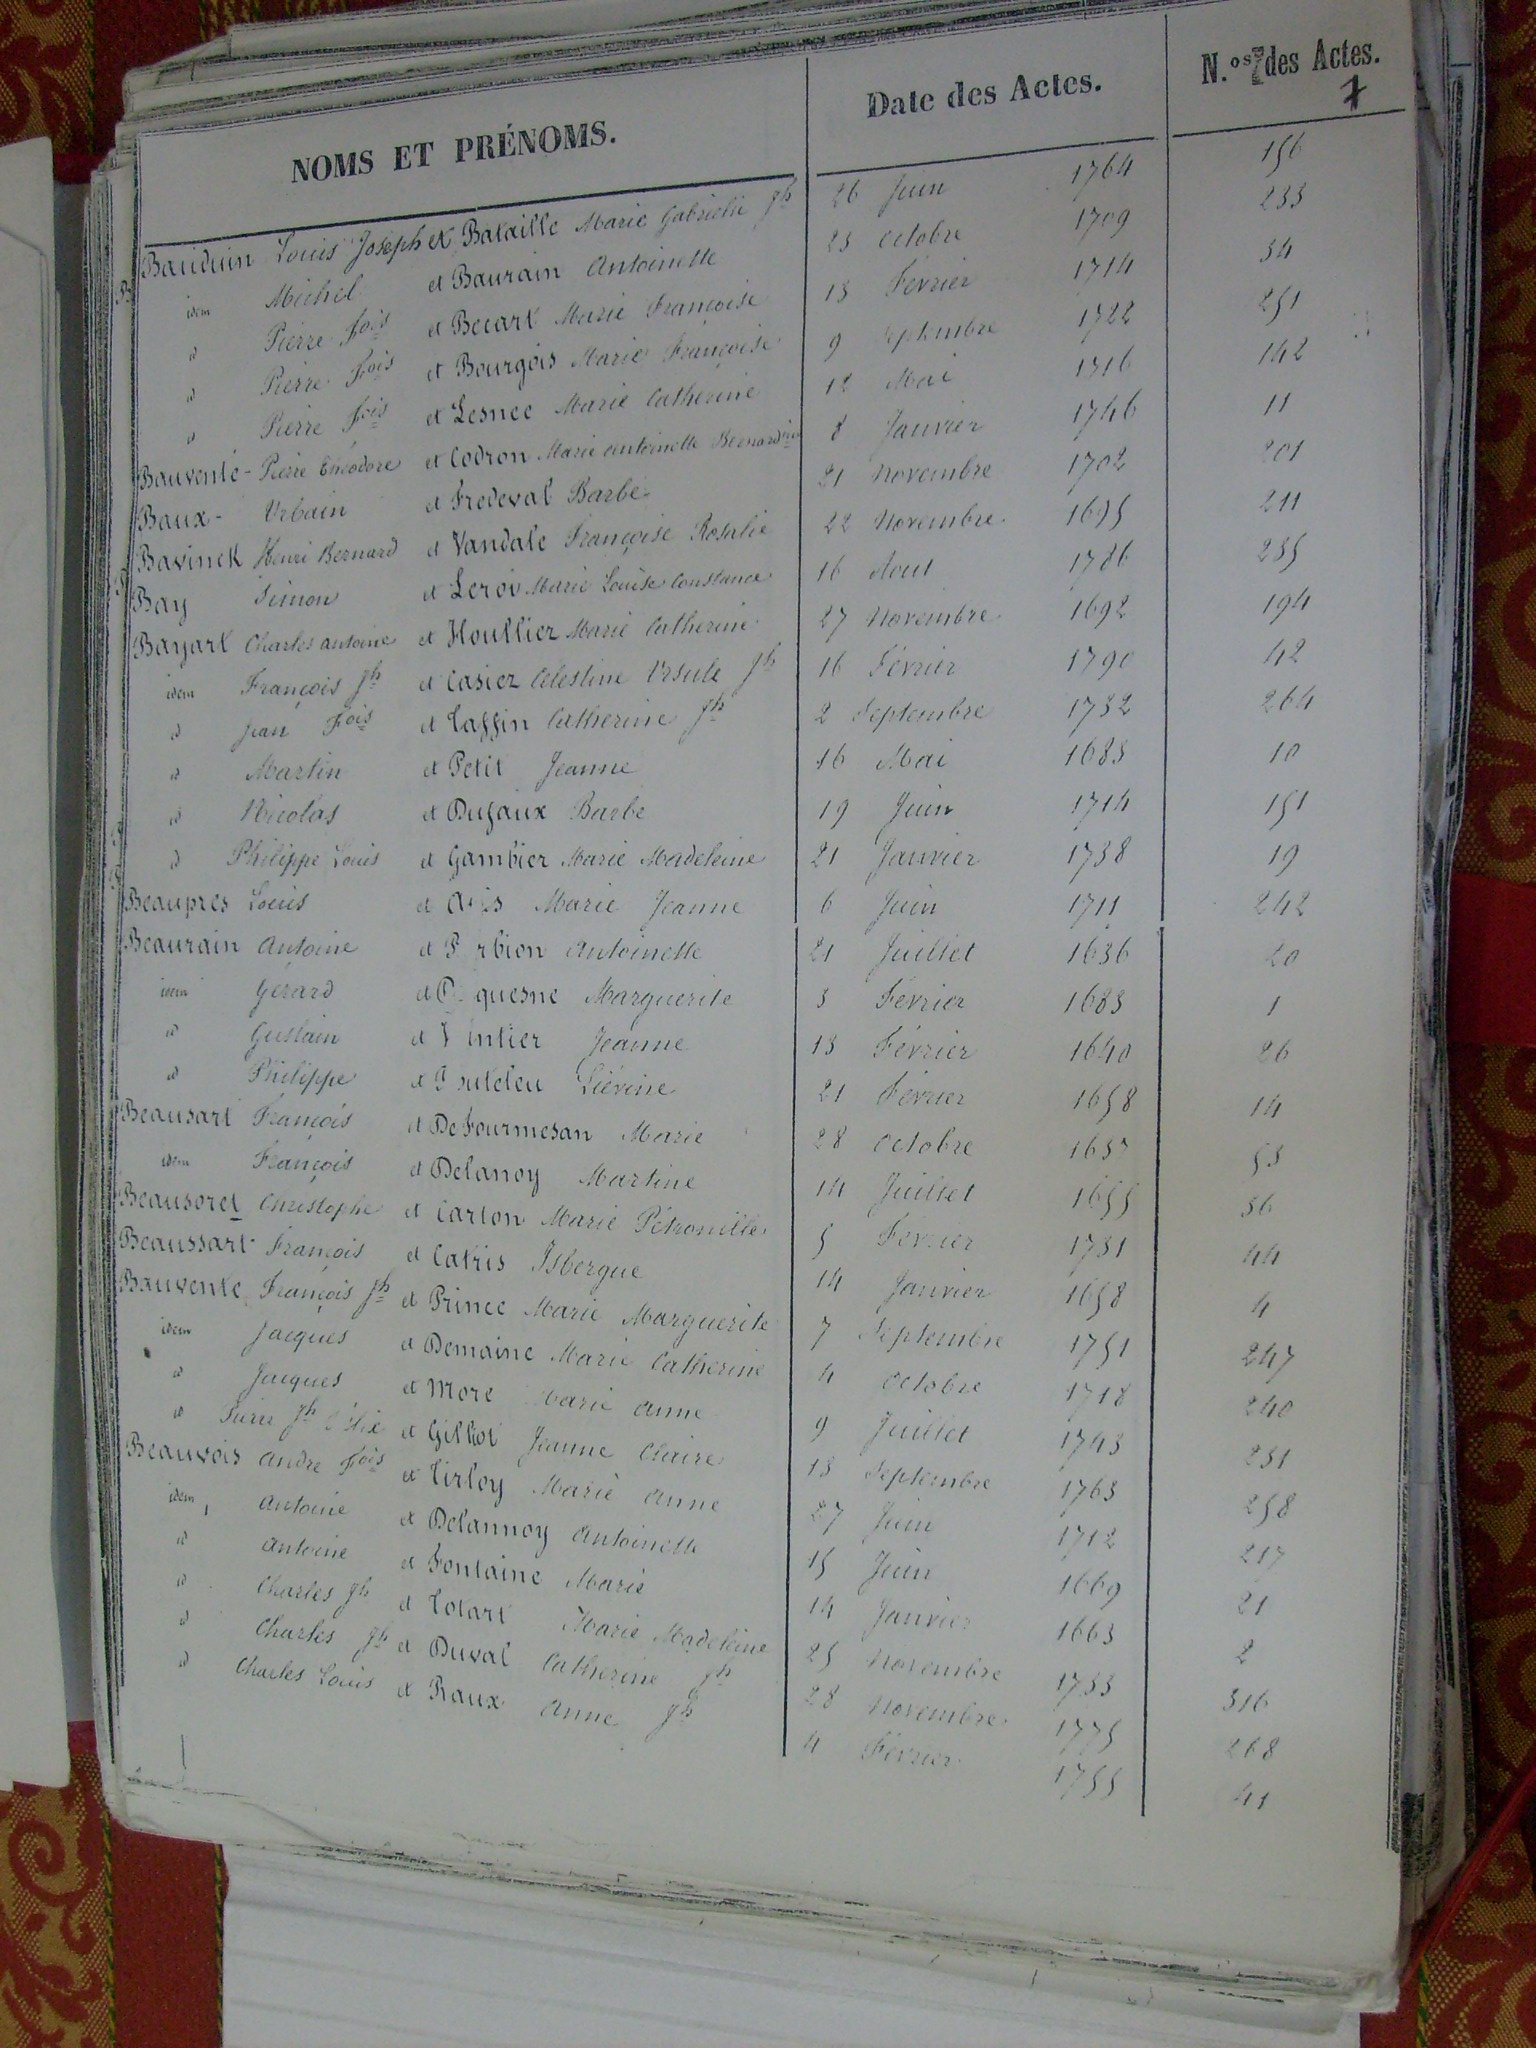 NOMS ET PRÉNOMS. Date des Actes. N.os des Actes.
7
Bauduin Louis Joseph et Bataille Marie Gabrielle Jh 26 Juin 1764 156
idem Michel et Baurain Antoinette 23 Octobre 1709 233
id Pierre fois et Becart Marie Françoise 13 Février 1714 34
id Pierre fois et Bourgois Marie Françoise 9 Septembre 1722 251
id Pierre fois et Lesnee Marie Catherine 12 Mai 1716 142
Bauvente - Pierre Théodore et Codron Marie Antoinette Bernardine 8 Janvier 1746 11
Baux - Urbain et Fredeval Barbe 21 Novembre 1702 201
Bavinck Henri Bernard et Vandale Françoise Rosalie 22 Novembre 1695 211
Bay Simon et Leroi Marie Louise Constance 16 Aout 1786 235
Bayart Charles Antoine et Houllier Marie Catherine 27 Novembre 1692 194
idem François Jh et Casiez Célestine Ursule Jh 16 Février 1790 42
id Jean fois et Taffin Catherine Jh 2 Septembre 1732 264
id Martin et Petit Jeanne 16 Mai 1683 10
id Nicolas et Dujaux Barbe 19 Juin 1714 151
id Philippe Louis et Gambier Marie Madeleine 21 Janvier 1738 19
Beaupres Louis et Marie Jeanne 6 Juin 1711 242
Beaurain Antoine et Antoinette 21 Juillet 1636 20
idem Gérard et Marguerite 3 Février 1683 1
id Guslain et Jeanne 13 Février 1640 26
id Philippe et Liévine 21 Février 1658 14
Beausart François et DeFourmesan Marie 28 Octobre 1637 53
idem François et Delanoy Martine 14 Juillet 1655 36
Beausoret Christophe et Carton Marie Pétronille 5 Février 1731 44
Beaussart François et Catris Isbergue 14 Janvier 1658 4
Bauvente François Jh et Prince Marie Marguerite 7 Septembre 1751 247
idem Jacques et Demaine Marie Catherine 4 Octobre 1718 240
id Jacques et More Marie Anne 9 Juillet 1743 231
id Jh et Gillot Jeanne Claire 13 Septembre 1763 258
Beauvois André fois et Tirloy Marie Anne 27 Juin 1712 217
idem, Antoine et Delannoy Antoinette 15 Juin 1669 21
id Antoine et Fontaine Marie 14 Janvier 1663 2
id Charles Jh et Totart Marie Madeleine 25 Novembre 1733 316
id Charles Jh et Duval Catherine Jh 28 Novembre 1775 268
id Charles Louis et Raux Anne Jh 4 Février 1755 41